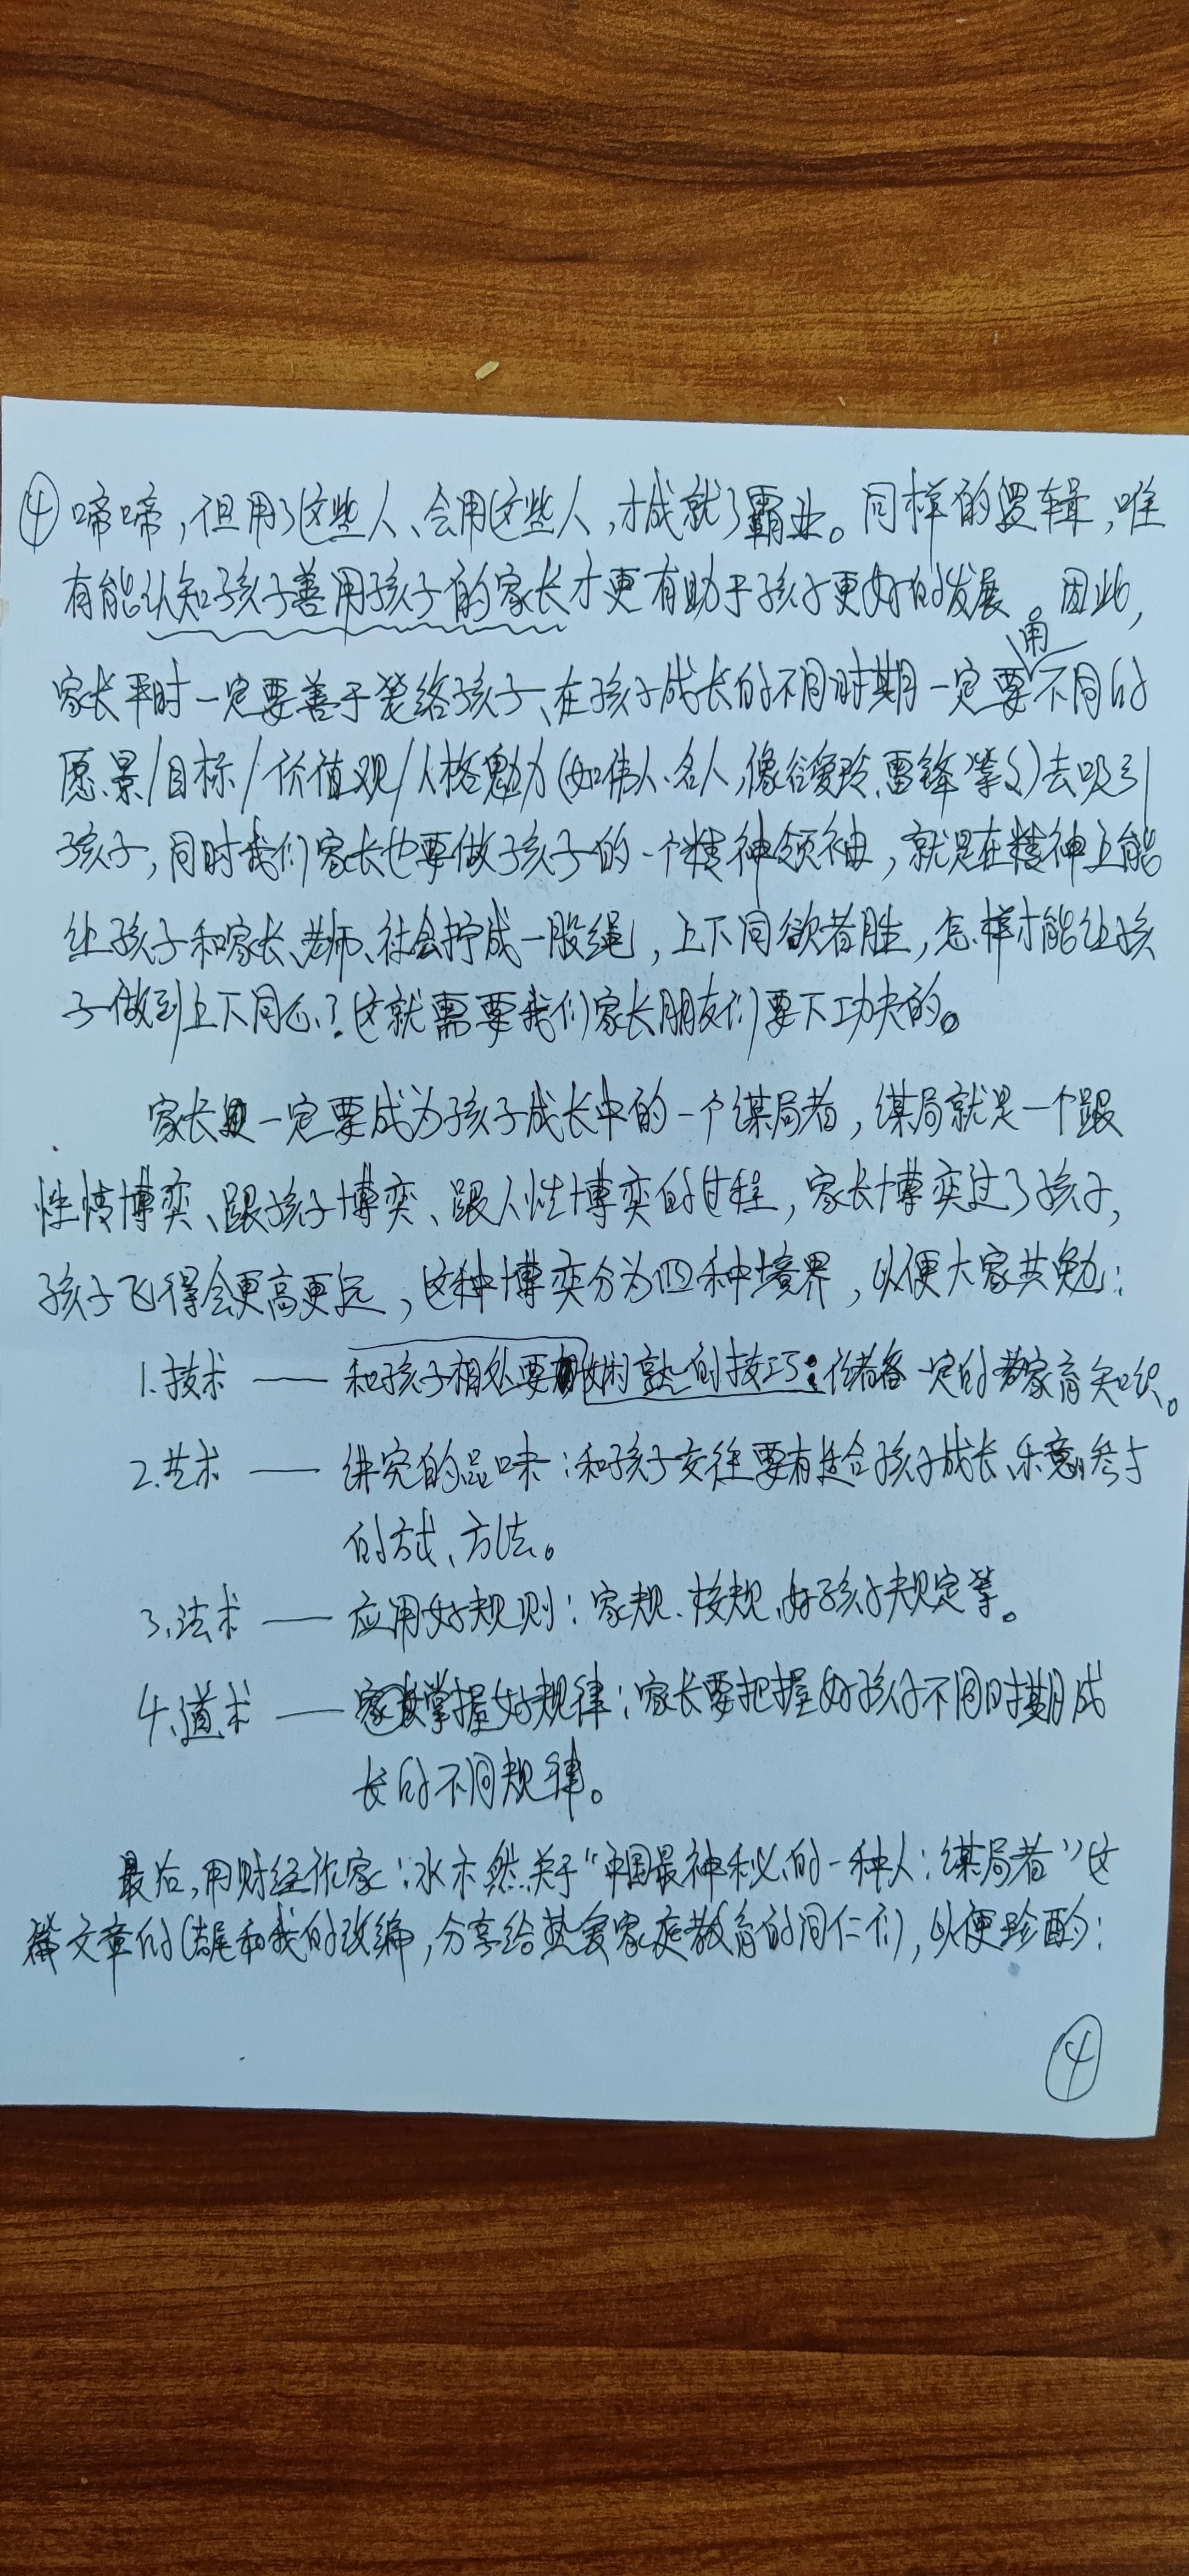 ④啼啼，但用了这些人、会用这些人，才成就了霸业。同样的逻辑，唯
有能认知孩子善用孩子的家长才更有助于孩子更好的发展。因此，
用
家长平时一定要善于笼络孩子、在孩子成长的不同时期一定要不同的
愿景/目标/价值观/人格魅力（如伟人、名人，像谷爱玲、雷锋等）去吸引
孩子，同时我们家长也要做孩子的一个精神领袖，就是在精神上能
让孩子和家长、老师、社会拧成一股绳，上下同欲者胜，怎样才能让孩
子做到上下同心？这就需要我们家长朋友们要下功夫的。
家长一定要成为孩子成长中的一个谋局者，谋局就是一个跟
性情博奕、跟孩子博奕、跟人性博奕的过程，家长博奕过了孩子，
孩子飞得会更高更远，这种博奕分为四种境界，以便大家共勉：
1.技术——和孩子相处要娴熟的技巧：备一定的家育知识。
2.艺术——讲究的品味：和孩子交往要有适合孩子成长、乐意参与
的方式、方法。
3.法术——应用好规则：家规、校规、好孩子规定等。
4.道术——掌握好规律：家长要把握好孩子不同时期成
长的不同规律。
最后，用财经作家：水木然关于“中国最神秘的一种人：谋局者”这
篇文章的结尾和我的改编，分享给热爱家庭教育的同仁们，以便珍酌：
④